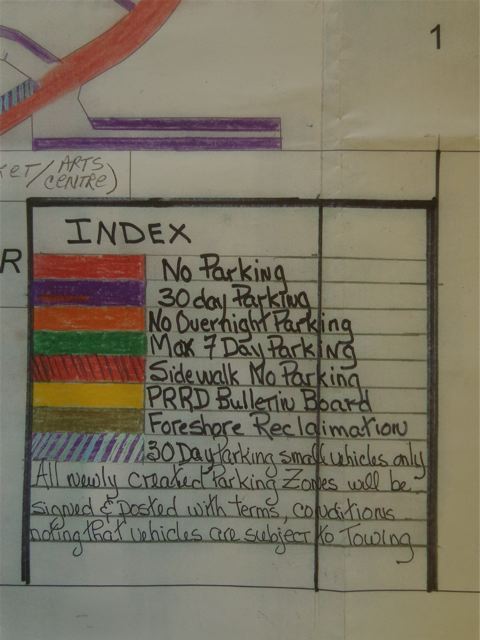 1
ARTS
CENTRE)
R
INDEX
No Parking
30 day Parking
No Overnight Parking
Max 7 Day Parking
Sidewalk No Parking
PRRD Bulletin Board
Foreshore Reclaimation
30 Day Parking small vehicles only
All newly created Parking Zones will be
signed & posted with terms, conditions
noting that vehicles are subject to Towing